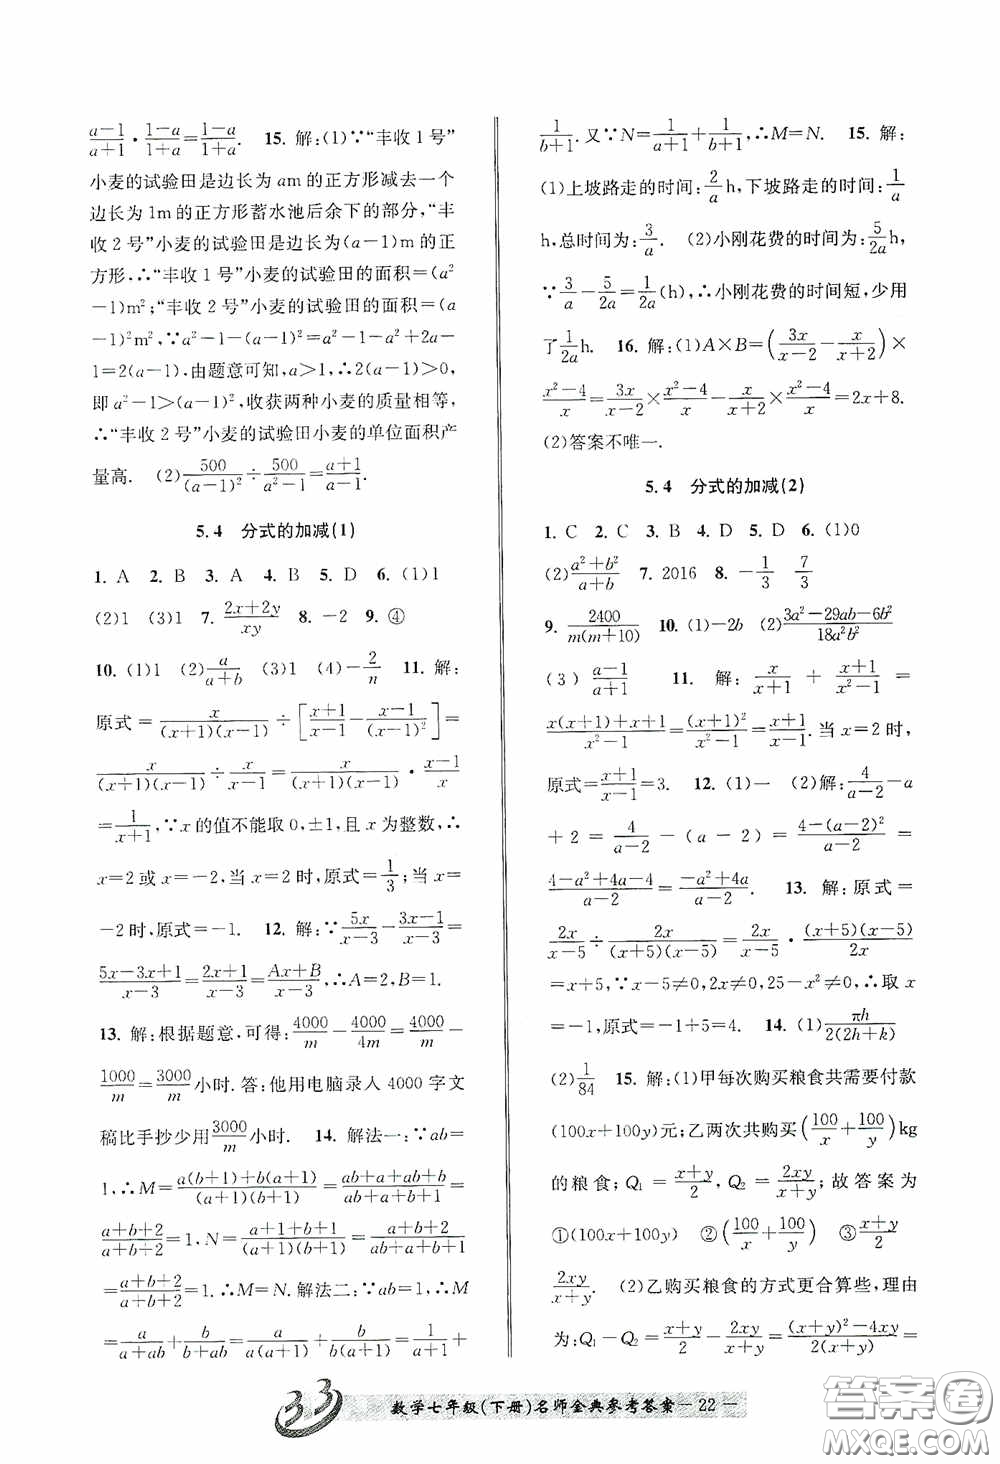 a－1/a＋1 · 1－a/1＋a＝1－a/1＋a. 15. 解:(1)∵“丰收1号”
小麦的试验田是边长为am的正方形减去一个
边长为1m的正方形蓄水池后余下的部分,“丰
收2号”小麦的试验田是边长为(a－1)m的正
方形,∴“丰收1号”小麦的试验田的面积＝(a²
－1)m²;“丰收2号”小麦的试验田的面积＝(a
－1)²m²,∵a²－1－(a－1)²＝a²－1－a²＋2a－
1＝2(a－1),由题意可知,a＞1,∴2(a－1)＞0,
即a²－1＞(a－1)²,收获两种小麦的质量相等,
∴“丰收2号”小麦的试验田小麦的单位面积产
量高. (2)500/(a－1)²÷500/a²－1＝a＋1/a－1.
5.4 分式的加减(1)
1. A 2. B 3. A 4. B 5. D 6. (1)1
(2)1 (3)1 7. 2x＋2y/xy 8. －2 9. ④
10. (1)1 (2)a/a＋b (3)1 (4)－2/n 11. 解:
原式＝x/(x＋1)(x－1)÷[x＋1/x－1－x－1/(x－1)²]＝
x/(x＋1)(x－1)÷x/x－1＝x/(x＋1)(x－1)·x－1/x
＝1/x＋1,∵x的值不能取0,±1,且x为整数,∴
x＝2或x＝－2,当x＝2时,原式＝1/3;当x＝
－2时,原式＝－1. 12. 解:∵5x/x－3－3x－1/x－3＝
5x－3x＋1/x－3＝2x＋1/x－3＝Ax＋B/x－3,∴A＝2,B＝1.
13. 解:根据题意,可得:4000/m－4000/4m＝4000/m－
1000/m＝3000/m小时.答:他用电脑录入4000字文
稿比手抄少用3000/m小时. 14. 解法一:∵ab＝
1,∴M＝a(b＋1)＋b(a＋1)/(a＋1)(b＋1)＝a＋ab＋ab＋b/a＋ab＋b＋1＝
a＋b＋2/a＋b＋2＝1,N＝a＋1＋b＋1/(a＋1)(b＋1)＝a＋b＋2/a＋ab＋b＋1＝
a＋b＋2/a＋b＋2＝1.∴M＝N.解法二:∵ab＝1,∴M
＝a/a＋ab＋b/b＋ab＝a/a(1＋b)＋b/b(a＋1)＝1/a＋1＋
1/b＋1.又∵N＝1/a＋1＋1/b＋1,∴M＝N. 15. 解:
(1)上坡路走的时间:2/a h,下坡路走的时间:1/a
h,总时间为:3/a. (2)小刚花费的时间为:5/2a h,
∵3/a－5/2a＝1/2a(h),∴小刚花费的时间短,少用
了1/2a h. 16. 解:(1)A×B＝(3x/x－2－x/x＋2)×
x²－4/x＝3x/x－2×x²－4/x－x/x＋2×x²－4/x＝2x＋8.
(2)答案不唯一.
5.4 分式的加减(2)
1. C 2. C 3. B 4. D 5. D 6. (1)0
(2)a²＋b²/a＋b 7. 2016 8. －1/3 7/3
9. 2400/m(m＋10) 10. (1)－2b (2)3a²－29ab－6b²/18a²b²
(3) a－1/a＋1 11. 解: x/x＋1 ＋ x＋1/x²－1 ＝
x(x＋1)＋x＋1/x²－1＝(x＋1)²/x²－1＝x＋1/x－1.当x＝2时,
原式＝x＋1/x－1＝3. 12. (1)一 (2)解:4/a－2－a
＋2＝4/a－2－(a－2)＝4－(a－2)²/a－2＝
4－a²＋4a－4/a－2＝－a²＋4a/a－2. 13. 解:原式＝
2x/x－5÷2x/(x＋5)(x－5)＝2x/x－5·(x＋5)(x－5)/2x
＝x＋5,∵x－5≠0,2x≠0,25－x²≠0,∴取x
＝－1,原式＝－1＋5＝4. 14. (1)πh/2(2h＋k)
(2)1/84 15. 解:(1)甲每次购买粮食共需要付款
(100x＋100y)元;乙两次共购买(100/x＋100/y)kg
的粮食;Q₁＝x＋y/2,Q₂＝2xy/x＋y;故答案为
①(100x＋100y) ②(100/x＋100/y) ③x＋y/2
2xy/x＋y. (2)乙购买粮食的方式更合算些,理由
为:Q₁－Q₂＝x＋y/2－2xy/x＋y＝(x＋y)²－4xy/2(x＋y)＝
33 数学七年级(下册)名师金典参考答案－22－
答案圈
MXQE.COM